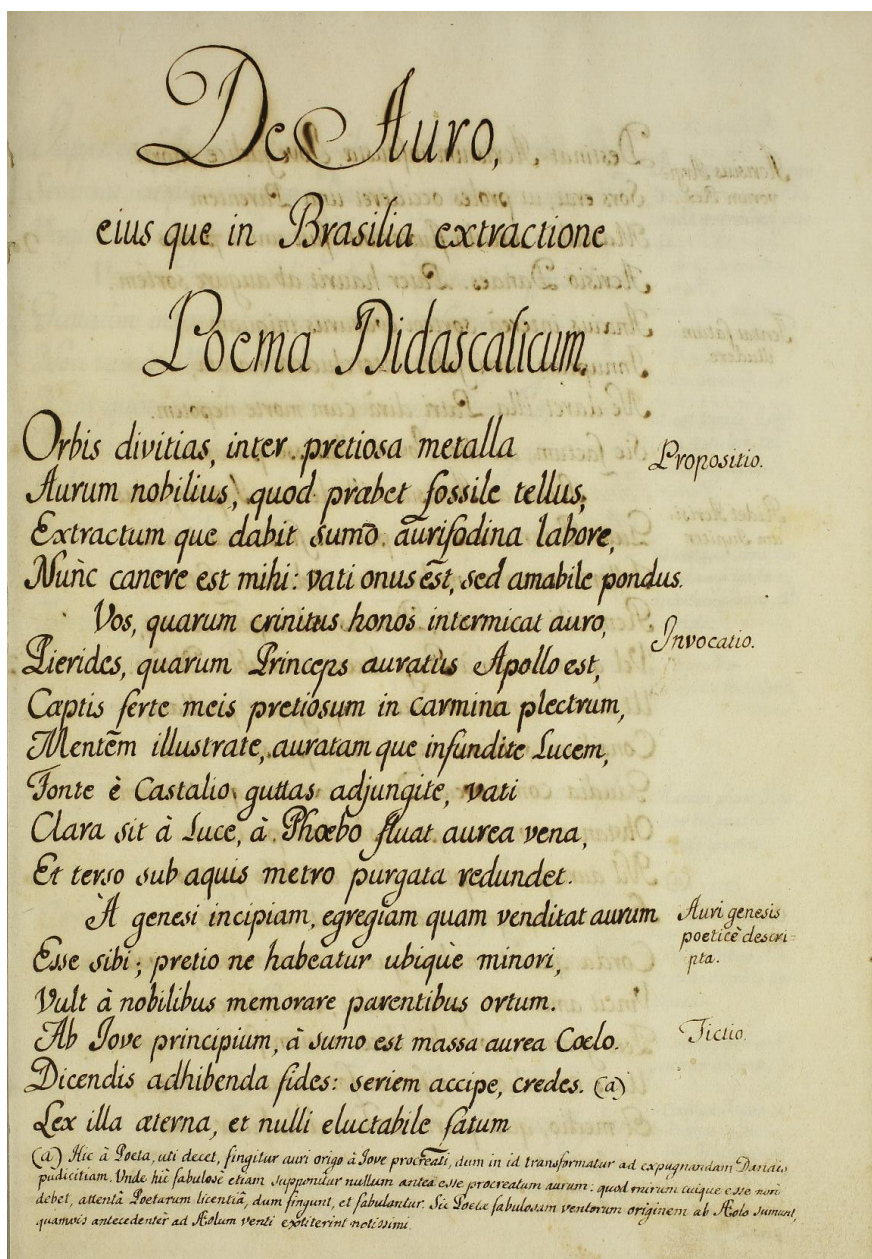 De Auro,
eius que in Brasilia extractione
Poema Didascalicum.
Orbis divitias, inter pretiosa metalla
Propositio.
Aurum nobilius, quod præbet fossile tellus,
Extractum que dabit sum̄o aurifodina labore,
Nunc canere est mihi: vati onus est, sed amabile pondus.
Vos, quarum crinitus honos intermicat auro,
Invocatio.
Pierides, quarum Princeps auratus Apollo est,
Cæptis ferte meis pretiosum in carmina plectrum,
Mentem illustrate, auratam que infundite Lucem,
Fonte è Castalio guttas adjungite, vati
Clara sit à Luce, à Phœbo fluat aurea vena,
Et terso sub aquis metro purgata redundet.
À genesi incipiam, egregiam quam venditat aurum
Auri genesis
poeticè descri=
pta.
Esse sibi; pretio ne habeatur ubique minori,
Vult à nobilibus memorare parentibus ortum.
Ab Jove principium, à sumo est massa aurea Coelo.
Fictio.
Dicendis adhibenda fides: seriem accipe, credes. (a)
Lex illa æterna, et nulli eluctabile fatum
(a) Hic à Poeta, uti decet, fingitur auri origo à Jove procreati, dum in id transformatur ad expugnandam Danäis
pudicitiam. Unde hic fabulosè etiam supponitur nullum antea esse procreatum aurum: quod mirum cuique esse non
debet, attentâ Poetarum licentiâ, dum fingunt, et fabulantur. Sic Poetæ fabulosam ventorum originem ab Æolo sumunt,
quamvis antecedenter ad Æolum venti extiterint notissimi.